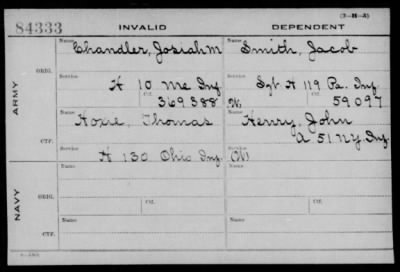 (3-H-3)
84333 INVALID DEPENDENT
Name Chandler, Josiah M Name Smith, Jacob
ORIG.
Service H 10 Me Inf. Service Sgt H 119 Pa. Inf.
Ctf. 369388 Ctf. 59097
ARMY
(W)
Name Hoxie, Thomas Name Henry, John
A 51 N.Y. Inf.
CTF.
Service H 130 Ohio Inf. Service (W)
NAVY
Name Name
ORIG.
Service Service
Ctf. Ctf.
Name Name
CTF.